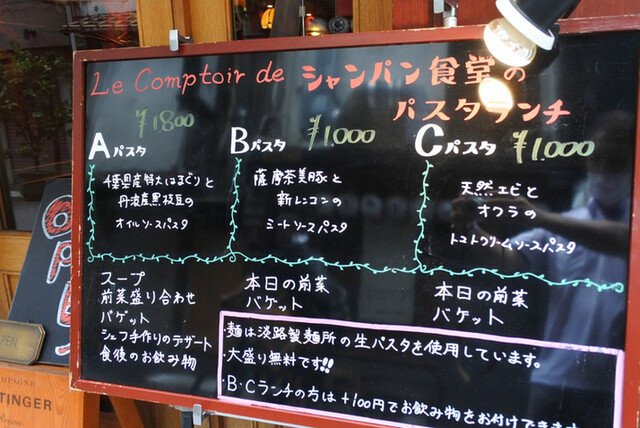 Le Comptoir de シャンパン食堂の
パスタランチ
¥1800
Aパスタ
千葉県産特大はまぐりと
丹波産黒枝豆の
オイルソースパスタ
スープ
前菜盛り合わせ
バゲット
シェフ手作りのデザート
食後のお飲み物
Bパスタ ¥1.000
薩摩茶美豚と
新レンコンの
ミートソースパスタ
本日の前菜
バゲット
Cパスタ ¥1.000
天然エビと
オクラの
トマトクリームソースパスタ
本日の前菜
バゲット
麺は淡路製麺所の生パスタを使用しています。
・大盛り無料です!!
・B・Cランチの方は+100円でお飲み物をお付けできます
OPEN
TTINGER